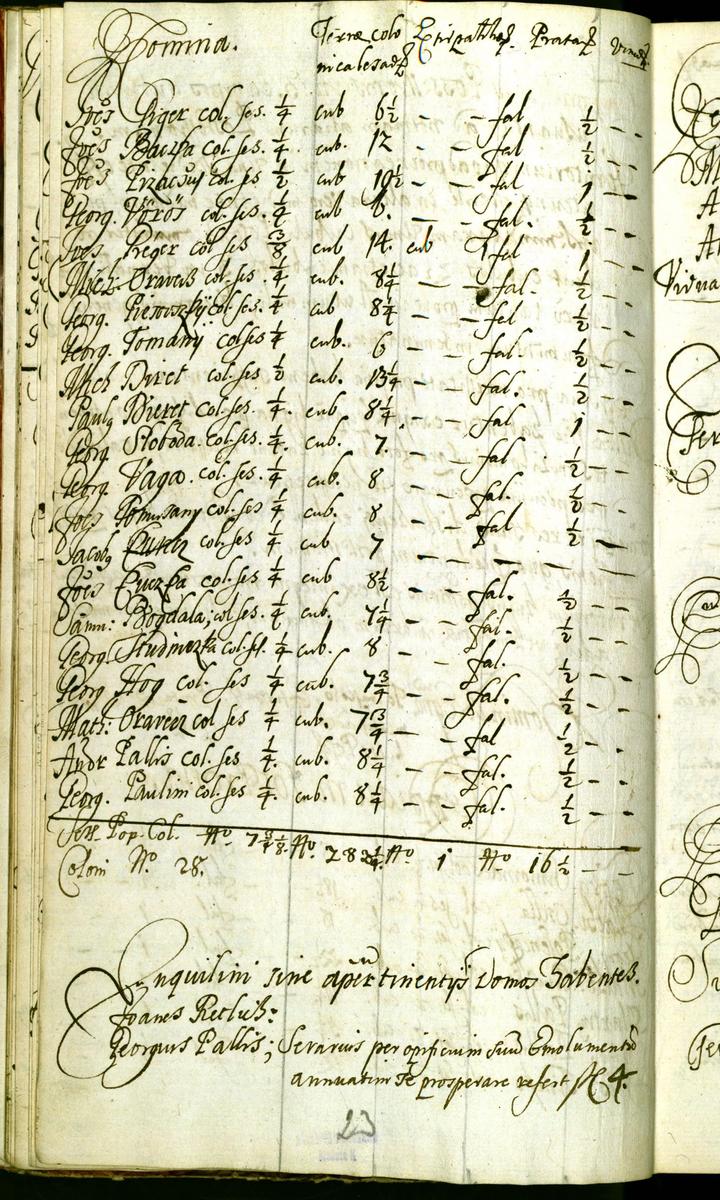 Nomina. Terræ colo Extirpatæq Prataq Vineæ
nicalesadq
Joēs Priger col. ses. 1/4 cub 6 1/2 - - fal 1/2 - -
Joēs Baczka col. ses. 1/4 cub. 12 - - fal 1/2 - -
Joēs col. ses 1/2 cub 10 1/2 - - fal 1 - -
Georg. Vörös col. ses. 1/4 cub 6. - - fal. 1/2 - -
Joēs Preger col ses 3/8 cub 14. cub 1 fal 1 - -
Mich: Oraveß col. ses. 1/4 cub. 8 1/4 - - fal. 1/2 - -
Georg. col. ses. 1/4 cub 8 1/4 - - fal 1/2 - -
Georg. Tomanÿ col ses 1/4 cub. 6 - - fal. 1/2 - -
Mich Diret col. ses 1/2 cub. 13 1/4 - - fal. 1/2 - -
Paulq Dieret col. ses. 1/4. cub 8 1/4 - - fal 1 - -
Georg Sloboda. col. ses. 1/4. cub. 7. - - fal 1/2 - -
Georg. Vaga. col. ses. 1/4 cub. 8 - - fal. 1/2 - -
Joēs col. ses 1/4 cub. 8 - - fal 1/2 - -
Jacobq col. ses 1/4 cub 7 - - - - -
Joēs col. ses 1/4 cub 8 1/2 - - fal. 1/2 - -
Sam: Bogdala, col ses. 1/4 cub. 7 1/4 - - fal. 1/2 - -
Georg. Studniczka col. ses. 1/4 cub. 8 - - fal. 1/2 - -
Georg Hog col. ses 1/4 cub. 7 3/4 - - fal. 1/2 - -
Math: Oravecz col ses 1/4 cub. 7 3/4 - - fal 1/2 - -
Andr Pallis col. ses 1/4. cub. 8 1/4 - - fal. 1/2 - -
Georg. Paulini col. ses 1/4. cub. 8 1/4 - - fal. 1/2 - -
Sess. Pop. Col. No. 7 No. No. 1 No 16 1/2 - -
Coloni No. 28.
Inquilini sine apertinentÿs Domos Habentes.
Joanes Retluß:
Georgius Pallis; Serarius per opificium suū Emolumentū
annuatim se prosperare refert fl. 4.
23